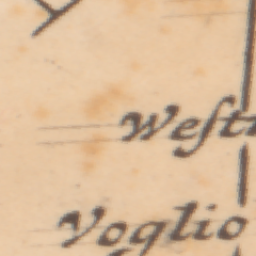 Weſt
Voglio